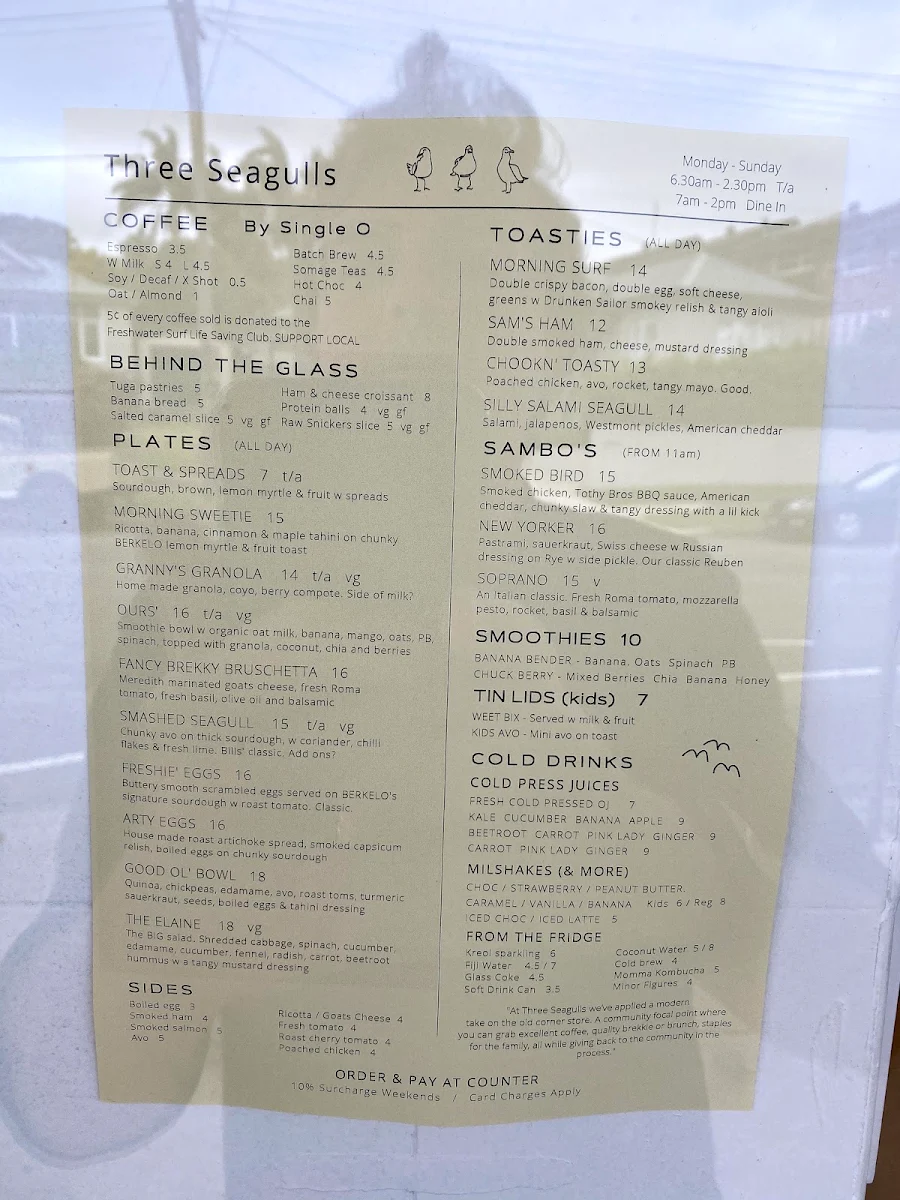 Three Seagulls
Monday - Sunday
6.30am - 2.30pm T/a
7am - 2pm Dine In
COFFEE By Single O
Espresso 3.5
W Milk S 4 L 4.5
Soy / Decaf / X Shot 0.5
Oat / Almond 1
Batch Brew 4.5
Somage Teas 4.5
Hot Choc 4
Chai 5
5¢ of every coffee sold is donated to the
Freshwater Surf Life Saving Club. SUPPORT LOCAL
BEHIND THE GLASS
Tuga pastries 5
Banana bread 5
Salted caramel slice 5 vg gf
Ham & cheese croissant 8
Protein balls 4 vg gf
Raw Snickers slice 5 vg gf
PLATES (ALL DAY)
TOAST & SPREADS 7 t/a
Sourdough, brown, lemon myrtle & fruit w spreads
MORNING SWEETIE 15
Ricotta, banana, cinnamon & maple tahini on chunky
BERKELO lemon myrtle & fruit toast
GRANNY'S GRANOLA 14 t/a vg
Home made granola, coyo, berry compote. Side of milk?
OURS' 16 t/a vg
Smoothie bowl w organic oat milk, banana, mango, oats, PB,
spinach, topped with granola, coconut, chia and berries
FANCY BREKKY BRUSCHETTA 16
Meredith marinated goats cheese, fresh Roma
tomato, fresh basil, olive oil and balsamic
SMASHED SEAGULL 15 t/a vg
Chunky avo on thick sourdough, w coriander, chilli
flakes & fresh lime. Bills' classic. Add ons?
FRESHIE' EGGS 16
Buttery smooth scrambled eggs served on BERKELO's
signature sourdough w roast tomato. Classic.
ARTY EGGS 16
House made roast artichoke spread, smoked capsicum
relish, boiled eggs on chunky sourdough
GOOD OL' BOWL 18
Quinoa, chickpeas, edamame, avo, roast toms, turmeric
sauerkraut, seeds, boiled eggs & tahini dressing
THE ELAINE 18 vg
The BIG salad. Shredded cabbage, spinach, cucumber,
edamame, cucumber, fennel, radish, carrot, beetroot
hummus w a tangy mustard dressing
SIDES
Boiled egg 3
Smoked ham 4
Smoked salmon 5
Avo 5
Ricotta / Goats Cheese 4
Fresh tomato 4
Roast cherry tomato 4
Poached chicken 4
TOASTIES (ALL DAY)
MORNING SURF 14
Double crispy bacon, double egg, soft cheese,
greens w Drunken Sailor smokey relish & tangy aioli
SAM'S HAM 12
Double smoked ham, cheese, mustard dressing
CHOOKN' TOASTY 13
Poached chicken, avo, rocket, tangy mayo. Good.
SILLY SALAMI SEAGULL 14
Salami, jalapenos, Westmont pickles, American cheddar
SAMBO'S (FROM 11am)
SMOKED BIRD 15
Smoked chicken, Tothy Bros BBQ sauce, American
cheddar, chunky slaw & tangy dressing with a lil kick
NEW YORKER 16
Pastrami, sauerkraut, Swiss cheese w Russian
dressing on Rye w side pickle. Our classic Reuben
SOPRANO 15 v
An Italian classic. Fresh Roma tomato, mozzarella
pesto, rocket, basil & balsamic
SMOOTHIES 10
BANANA BENDER - Banana. Oats Spinach PB
CHUCK BERRY - Mixed Berries Chia Banana Honey
TIN LIDS (kids) 7
WEET BIX - Served w milk & fruit
KIDS AVO - Mini avo on toast
COLD DRINKS
COLD PRESS JUICES
FRESH COLD PRESSED OJ 7
KALE CUCUMBER BANANA APPLE 9
BEETROOT CARROT PINK LADY GINGER 9
CARROT PINK LADY GINGER 9
MILSHAKES (& MORE)
CHOC / STRAWBERRY / PEANUT BUTTER.
CARAMEL / VANILLA / BANANA Kids 6 / Reg 8
ICED CHOC / ICED LATTE 5
FROM THE FRIDGE
Kreol sparkling 6
Fiji Water 4.5 / 7
Glass Coke 4.5
Soft Drink Can 3.5
Coconut Water 5 / 8
Cold brew 4
Momma Kombucha 5
Minor Figures 4
"At Three Seagulls we've applied a modern
take on the old corner store. A community focal point where
you can grab excellent coffee, quality brekkie or brunch, staples
for the family, all while giving back to the community in the
process."
ORDER & PAY AT COUNTER
10% Surcharge Weekends / Card Charges Apply